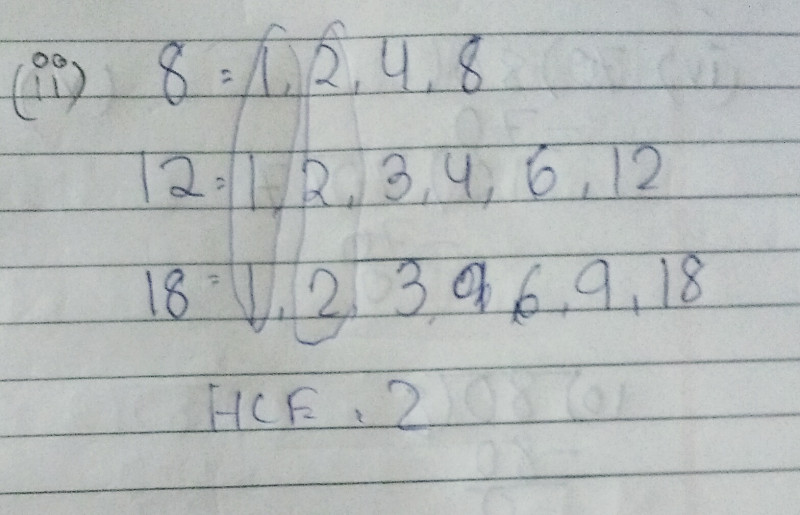 (iii) 8 = 1, 2, 4, 8
12 = 1, 2, 3, 4, 6, 12
18 = 1, 2, 3, 6, 9, 18
HCF = 2